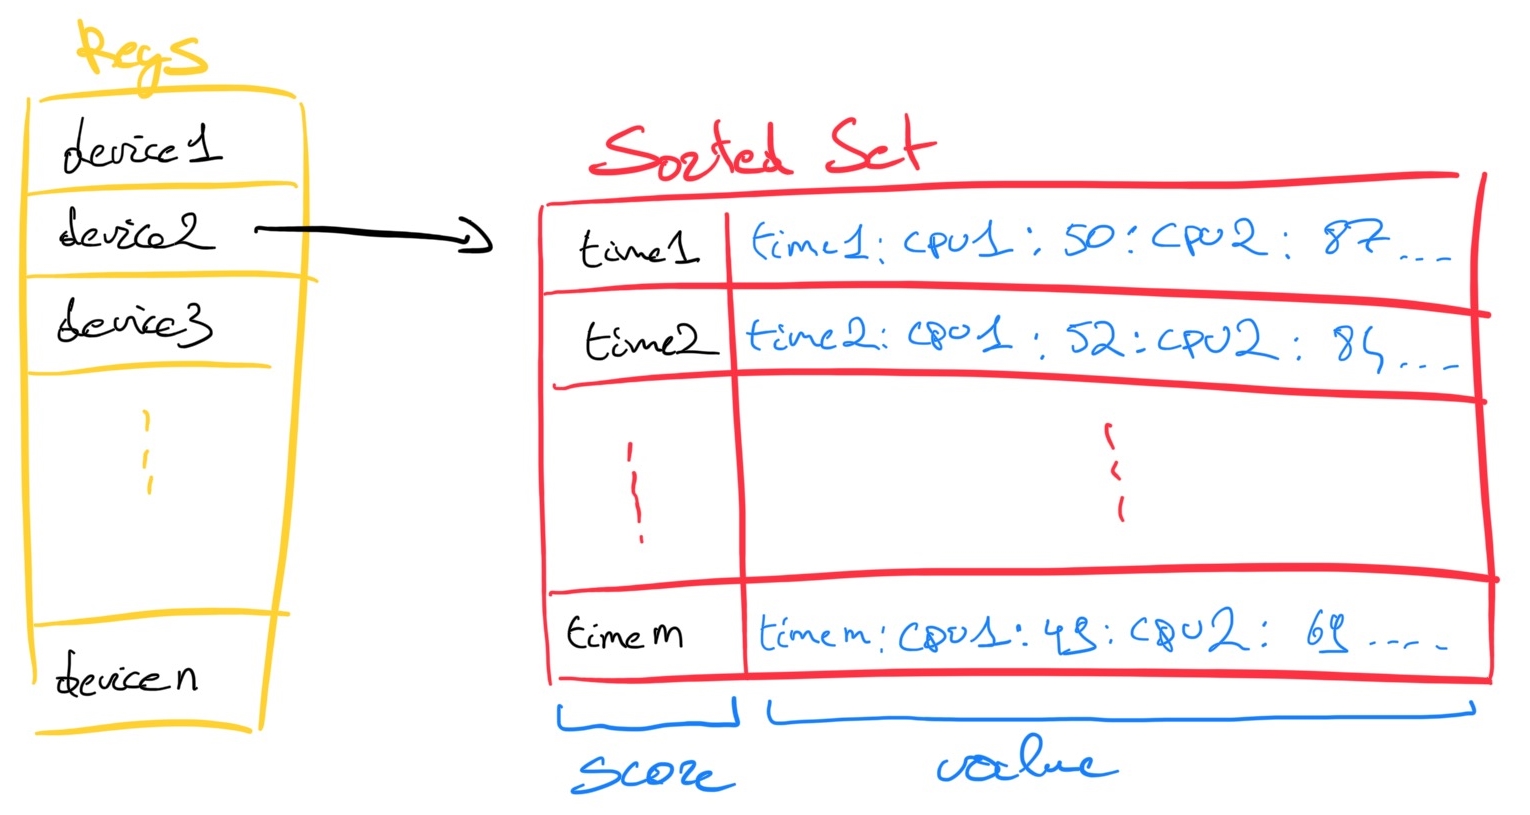 Keys
device1
device2
device3
device n
Sorted Set
time1 time1: CPU1 : 50 : CPU2 : 87 ...
time2 time2: CPU1 : 52 : CPU2 : 84 ...
time m time m: CPU1 : 49 : CPU2 : 69 ....
score value